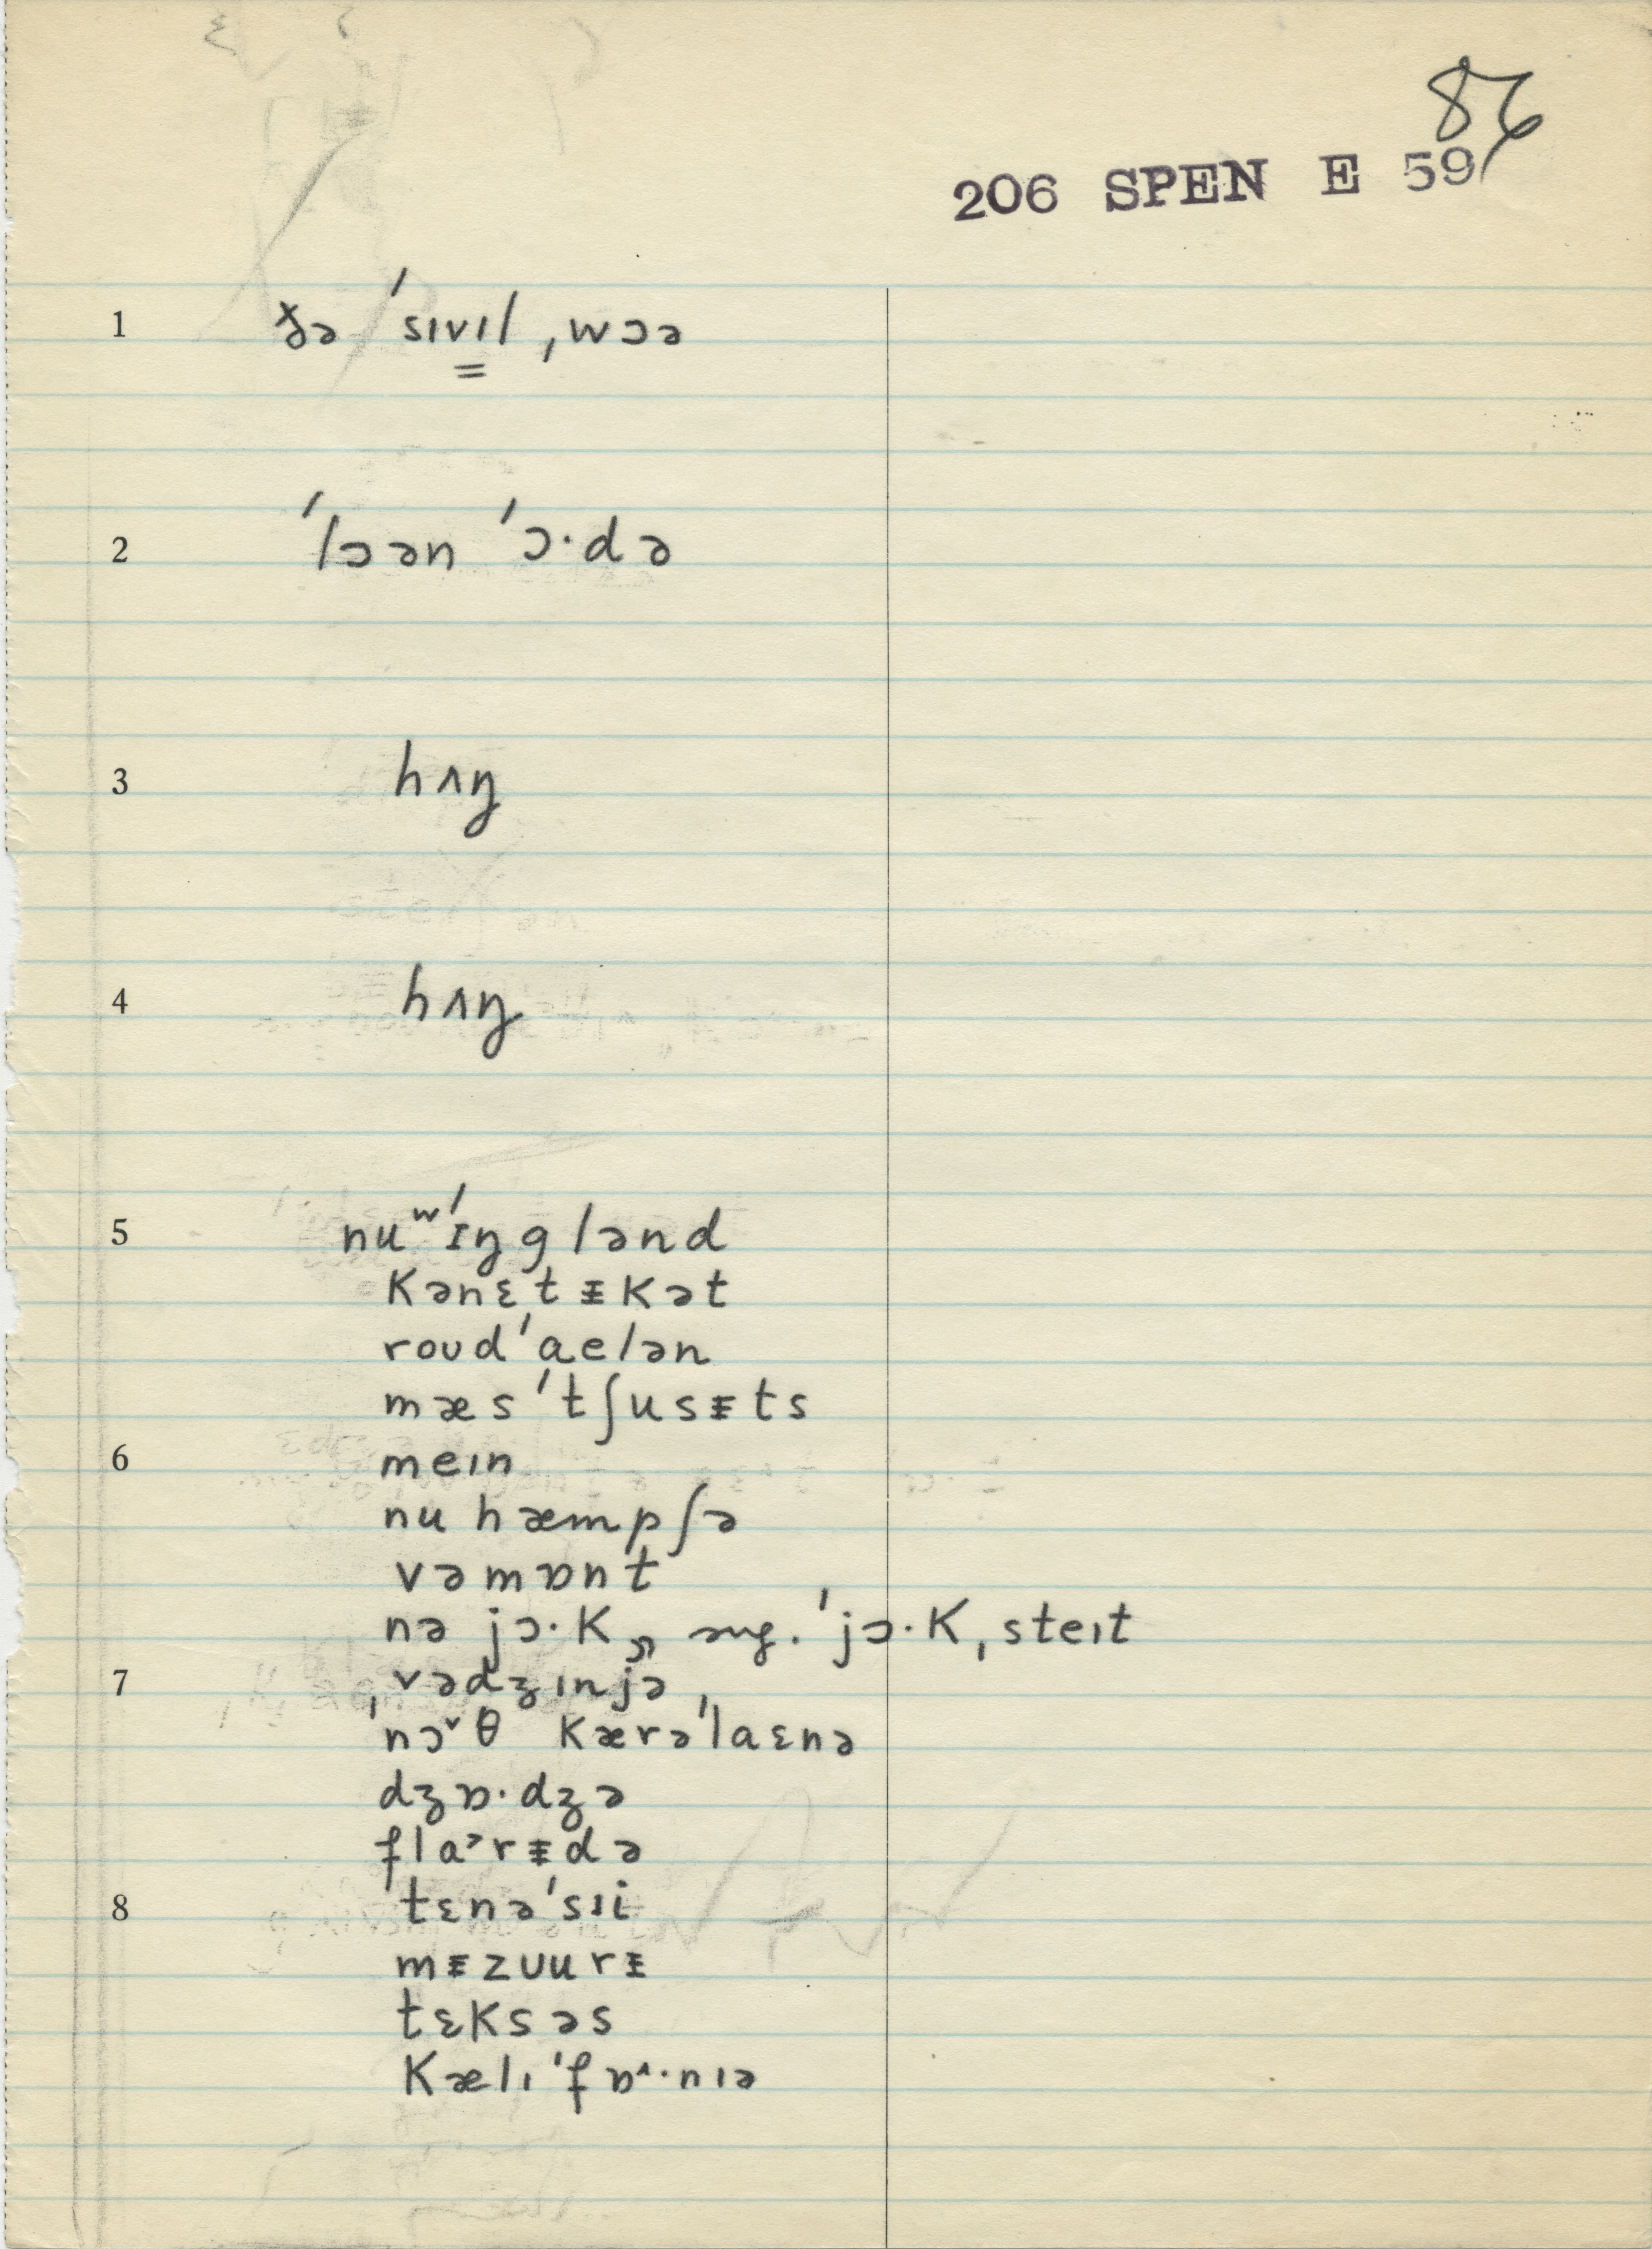 86
206 SPEN E 59
1 ðə ˈsɪvɪl ˌwɔə
2 ˈlɔən ˈɔ·də
3 hʌŋ
4 hʌŋ
5 nuʷˈɪŋglənd
kənɛtᵻkət
roʊdˈaelən
mæsˈtʃusᵻts
6 meɪn
nu hæmpʃə
vəmɒnt
nə jɔ·k ˈjɔ·kˌsteɪt
7 ˌvədʒɪnjə
ˌnɔ˅θ kærəˈlaɛnə
dʒɒ·dʒə
fla˃rᵻdə
8 ˈtɛnəˈsɪi
mᵻzʊurᵻ
tɛksəs
kælɪˈfɒ˄·nɪə